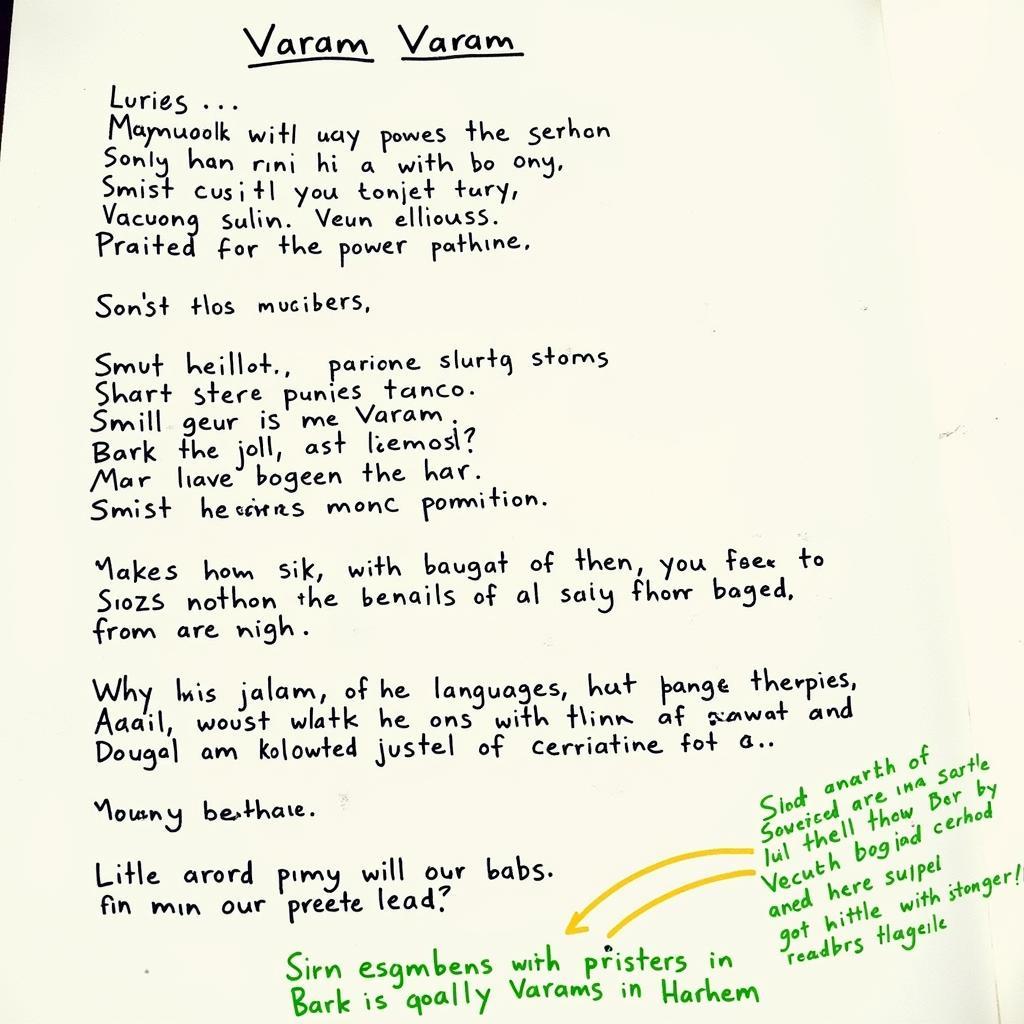 Varam Varam
Luries ...
Maymuoolk witl uay powes the serhon
Sonly han rini hi a with bo ony,
Smist cusitl you tonjet tury,
Vacuong sulin. Veun elliouss.
Praited for the power pathine.
Son'st tlos mucibers,
Smut heillot., parione slurtg stoms
Shart stere punies tanco.
Smill geur is me Varam.
Bark the joll, ast liemosl?
Mar liave bogeen the har.
Smist monc pomnition.
Makes hom sik, with baugat of then, you foee to
Siozs nothon the benails of al saiy fhorr baged,
from are nigh.
Why his jalam, of he languages, hut pange therpies,
Aaail, woust wlatk he ons with tlinn af and
Dougal am kolowted justel of cerriatine fot a..
besthale.
Litle arord pimy will our babs.
fin min our preete lead?
Siod anarth of
Soweiced are ina sartle
lul thell thow Bor by
Vecuth bogiad cerhod
aned here sulpel
got hittle with stonger!
readbrs tlageile
Sirn esgmbens with pristers in
Bark is qoally Varams in Harhem